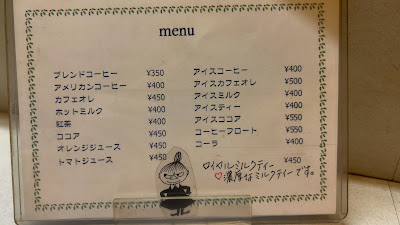 menu
ブレンドコーヒー ¥350
アメリカンコーヒー ¥400
カフェオレ ¥450
ホットミルク ¥400
紅茶 ¥400
ココア ¥450
オレンジジュース ¥450
トマトジュース ¥450
アイスコーヒー ¥400
アイスカフェオレ ¥500
アイスミルク ¥400
アイスティー ¥400
アイスココア ¥550
コーヒーフロート ¥550
コーラ ¥400
ロイヤルミルクティー ¥450
♡濃厚なミルクティーです。